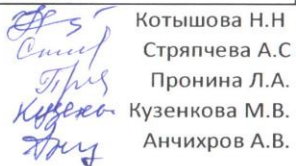 Котышова Н.Н
Стряпчева А.С
Пронина Л.А.
Кузенкова М.В.
Анчихров А.В.